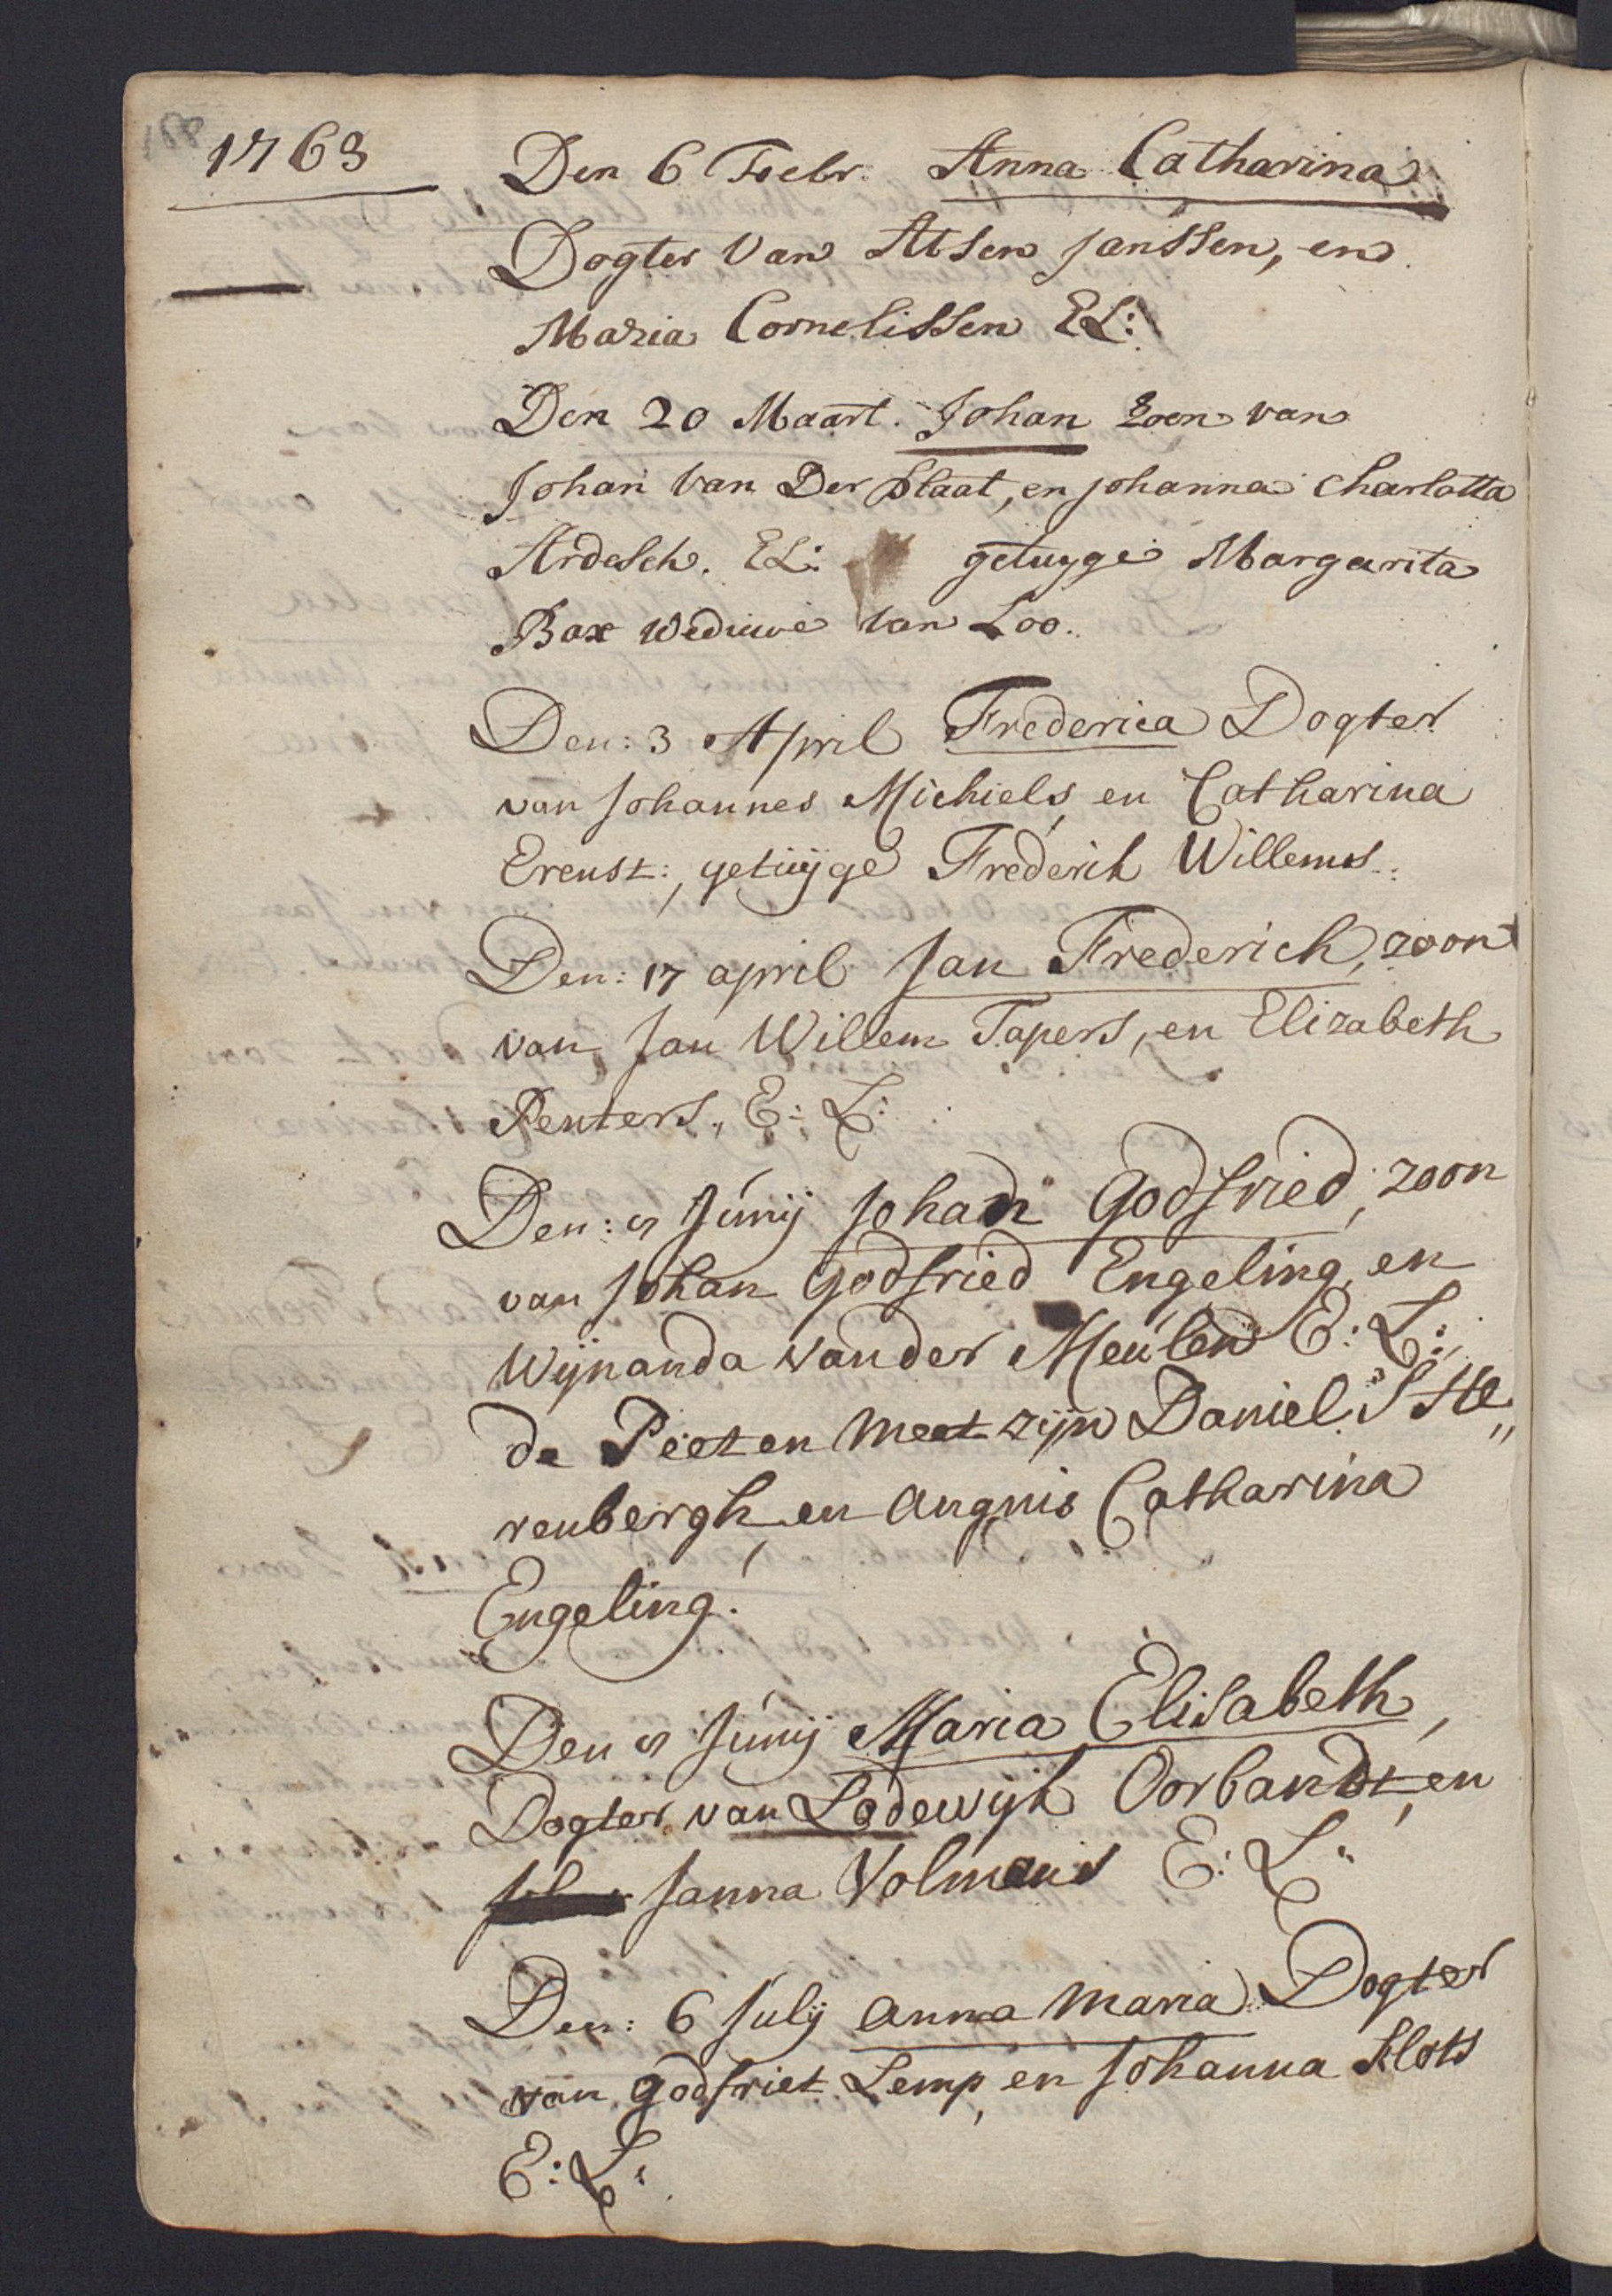 1763
Den 6 Febr. Anna Catharina
Dogter van Absen Janssen, en
Maria Cornelissen EL:
Den 20 Maart. Johan zoon van
Johan van Der Plaat, en johanna Charlotta
Ardesch. EL: getuyge Margarita
Bax weduwe van Loo.
Den: 3 April Frederica Dogter
van Johannes Michiels, en Catharina
Erenst:, getuijge Frederik Willems..
Den: 17 april Jan Frederich, zoon
van Jan Willem Tapers, en Elizabeth
Penters., E: L:
Den: Junij Johan Godfried, zoon
van Johan Godfried Engeling, en
Wijnanda vander Meulen E: L:,
de Peet en Meet zijn Daniel Ste„
renbergh, en Angnis Catharina
Engeling.
Den Junij Maria Elisabeth,
Dogter van Lodewijk Oorbandt, en
Janna Volmans E: L:
Den: 6 Julij Anna Maria Dogter
van godfriet Lemp, en Johanna Klots
E: L: